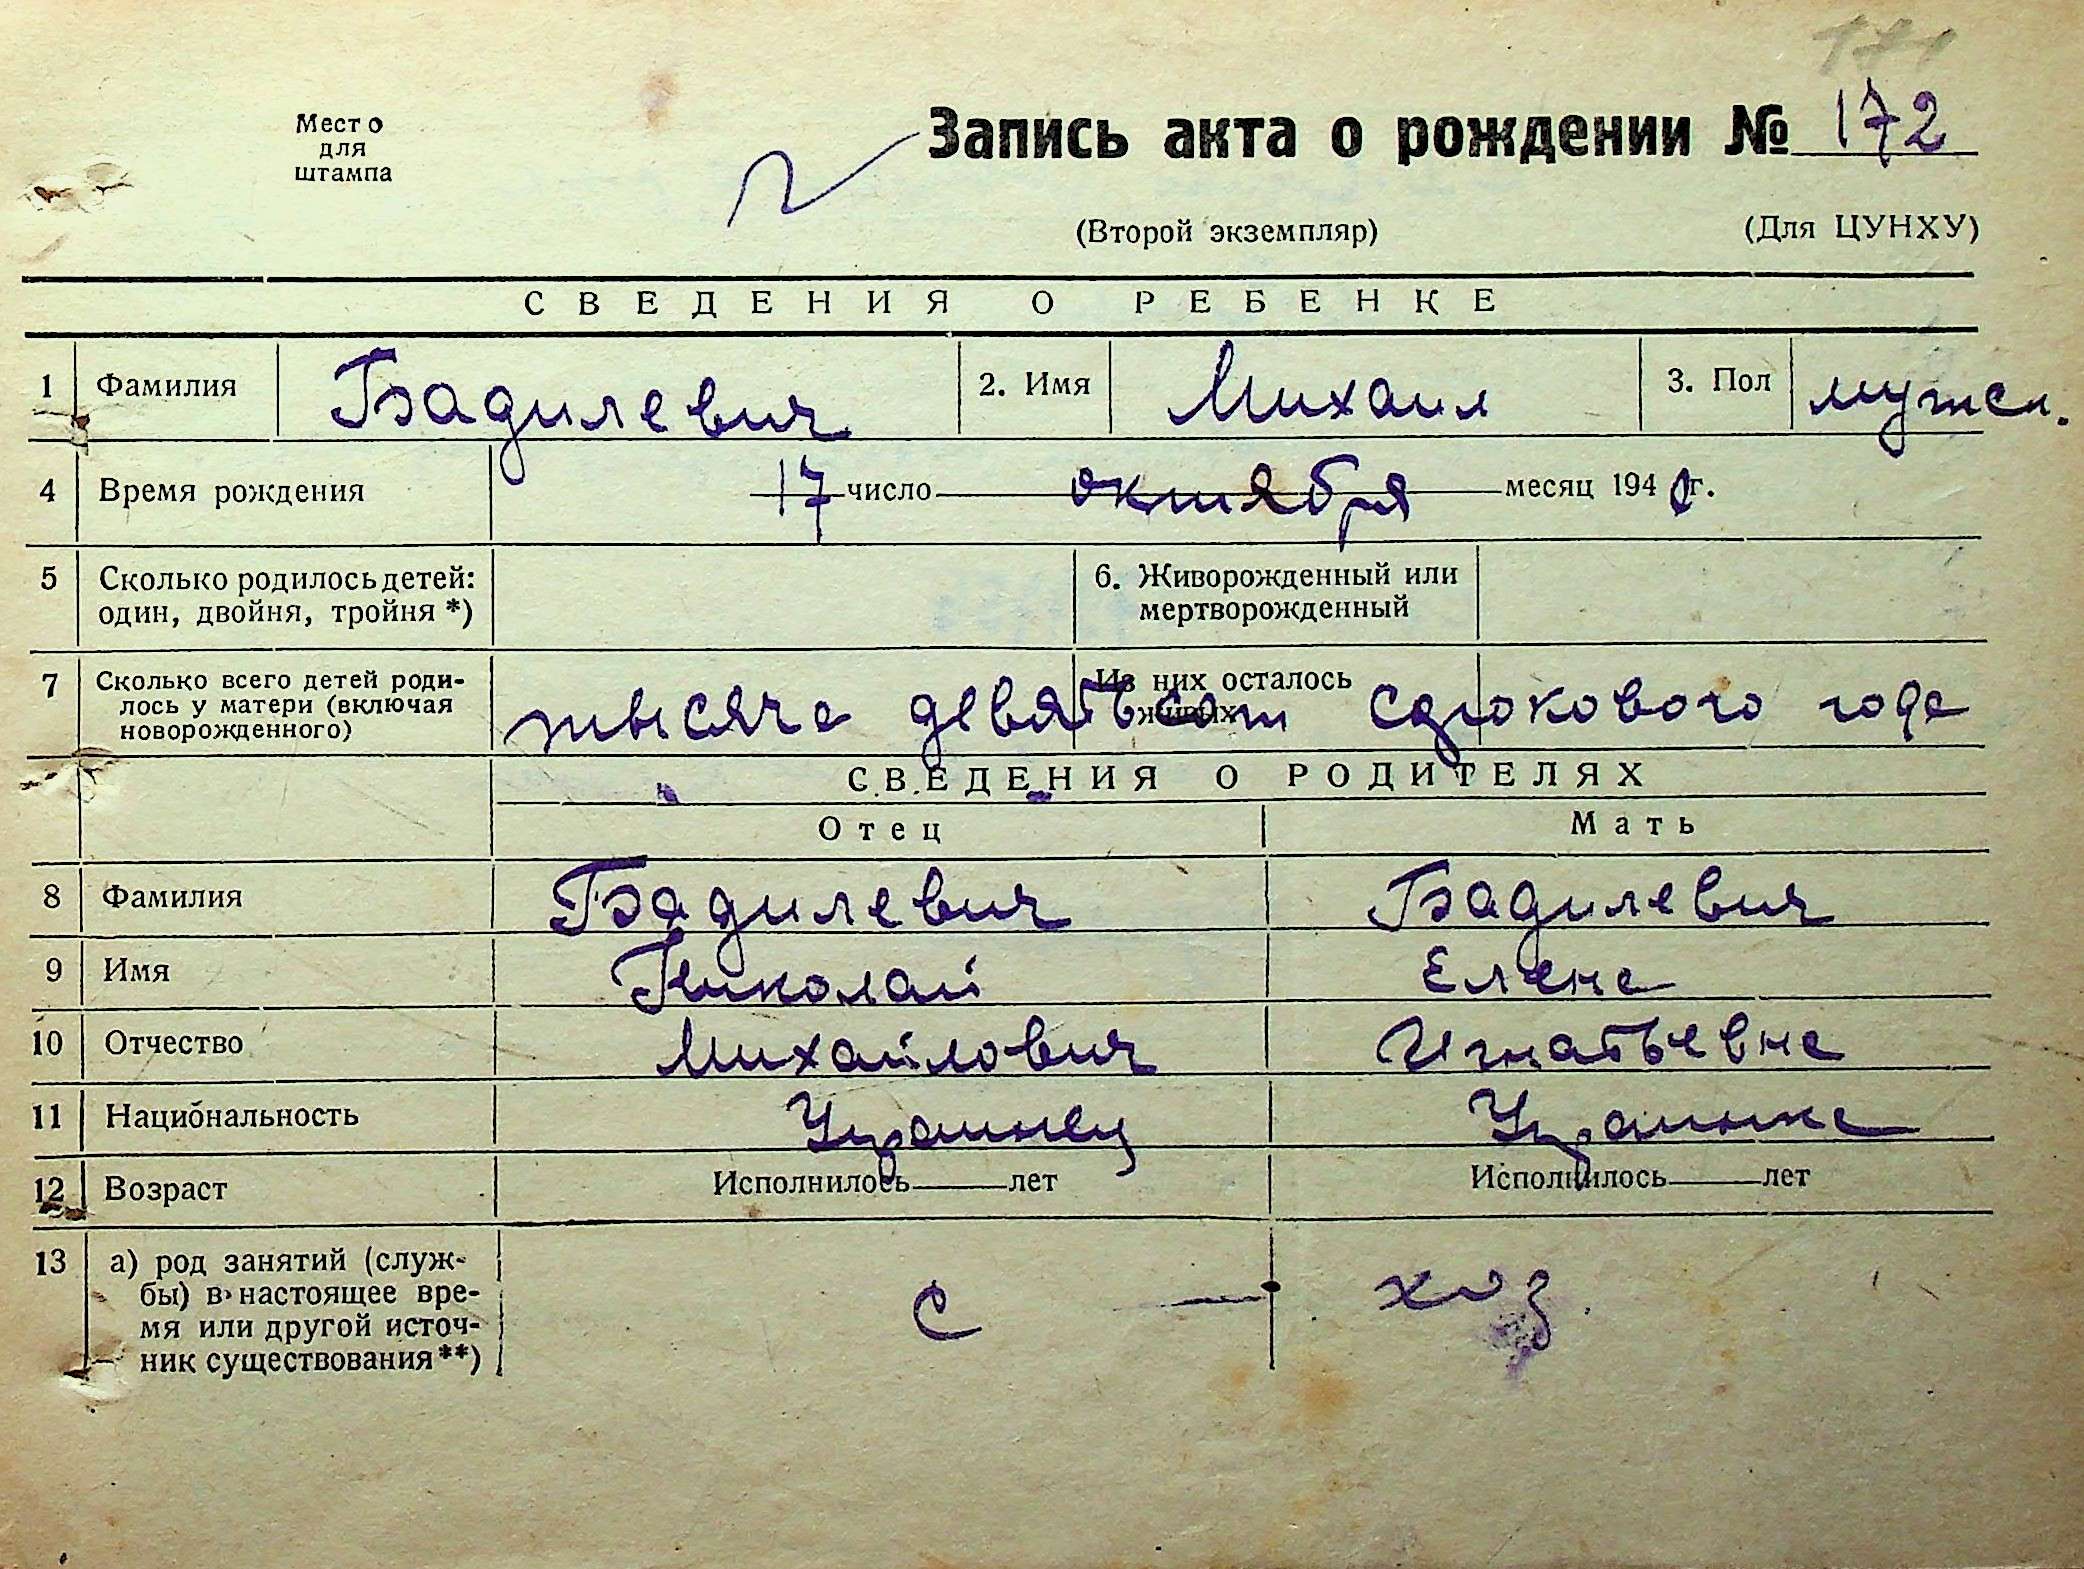 171
Место
для
штампа
Запись акта о рождении № 172
(Второй экземпляр) (Для ЦУНХУ)
СВЕДЕНИЯ О РЕБЕНКЕ
1 Фамилия Бадилевич 2. Имя Михаил 3. Пол мужск.
4 Время рождения 17 число октября месяц 1940 г.
5 Сколько родилось детей: 6. Живорожденный или
один, двойня, тройня *) мертворожденный
7 Сколько всего детей роди- Из них осталось
лось у матери (включая живых
новорожденного)
тысяча девятьсот сорокового года
СВЕДЕНИЯ О РОДИТЕЛЯХ
Отец Мать
8 Фамилия Бадилевич Бадилевич
9 Имя Николай Елена
10 Отчество Михайлович Игнатьевна
11 Национальность Украинец Украинка
12 Возраст Исполнилось лет Исполнилось лет
13 а) род занятий (служ-
бы) в настоящее вре-
мя или другой источ-
ник существования**)
с — хоз.